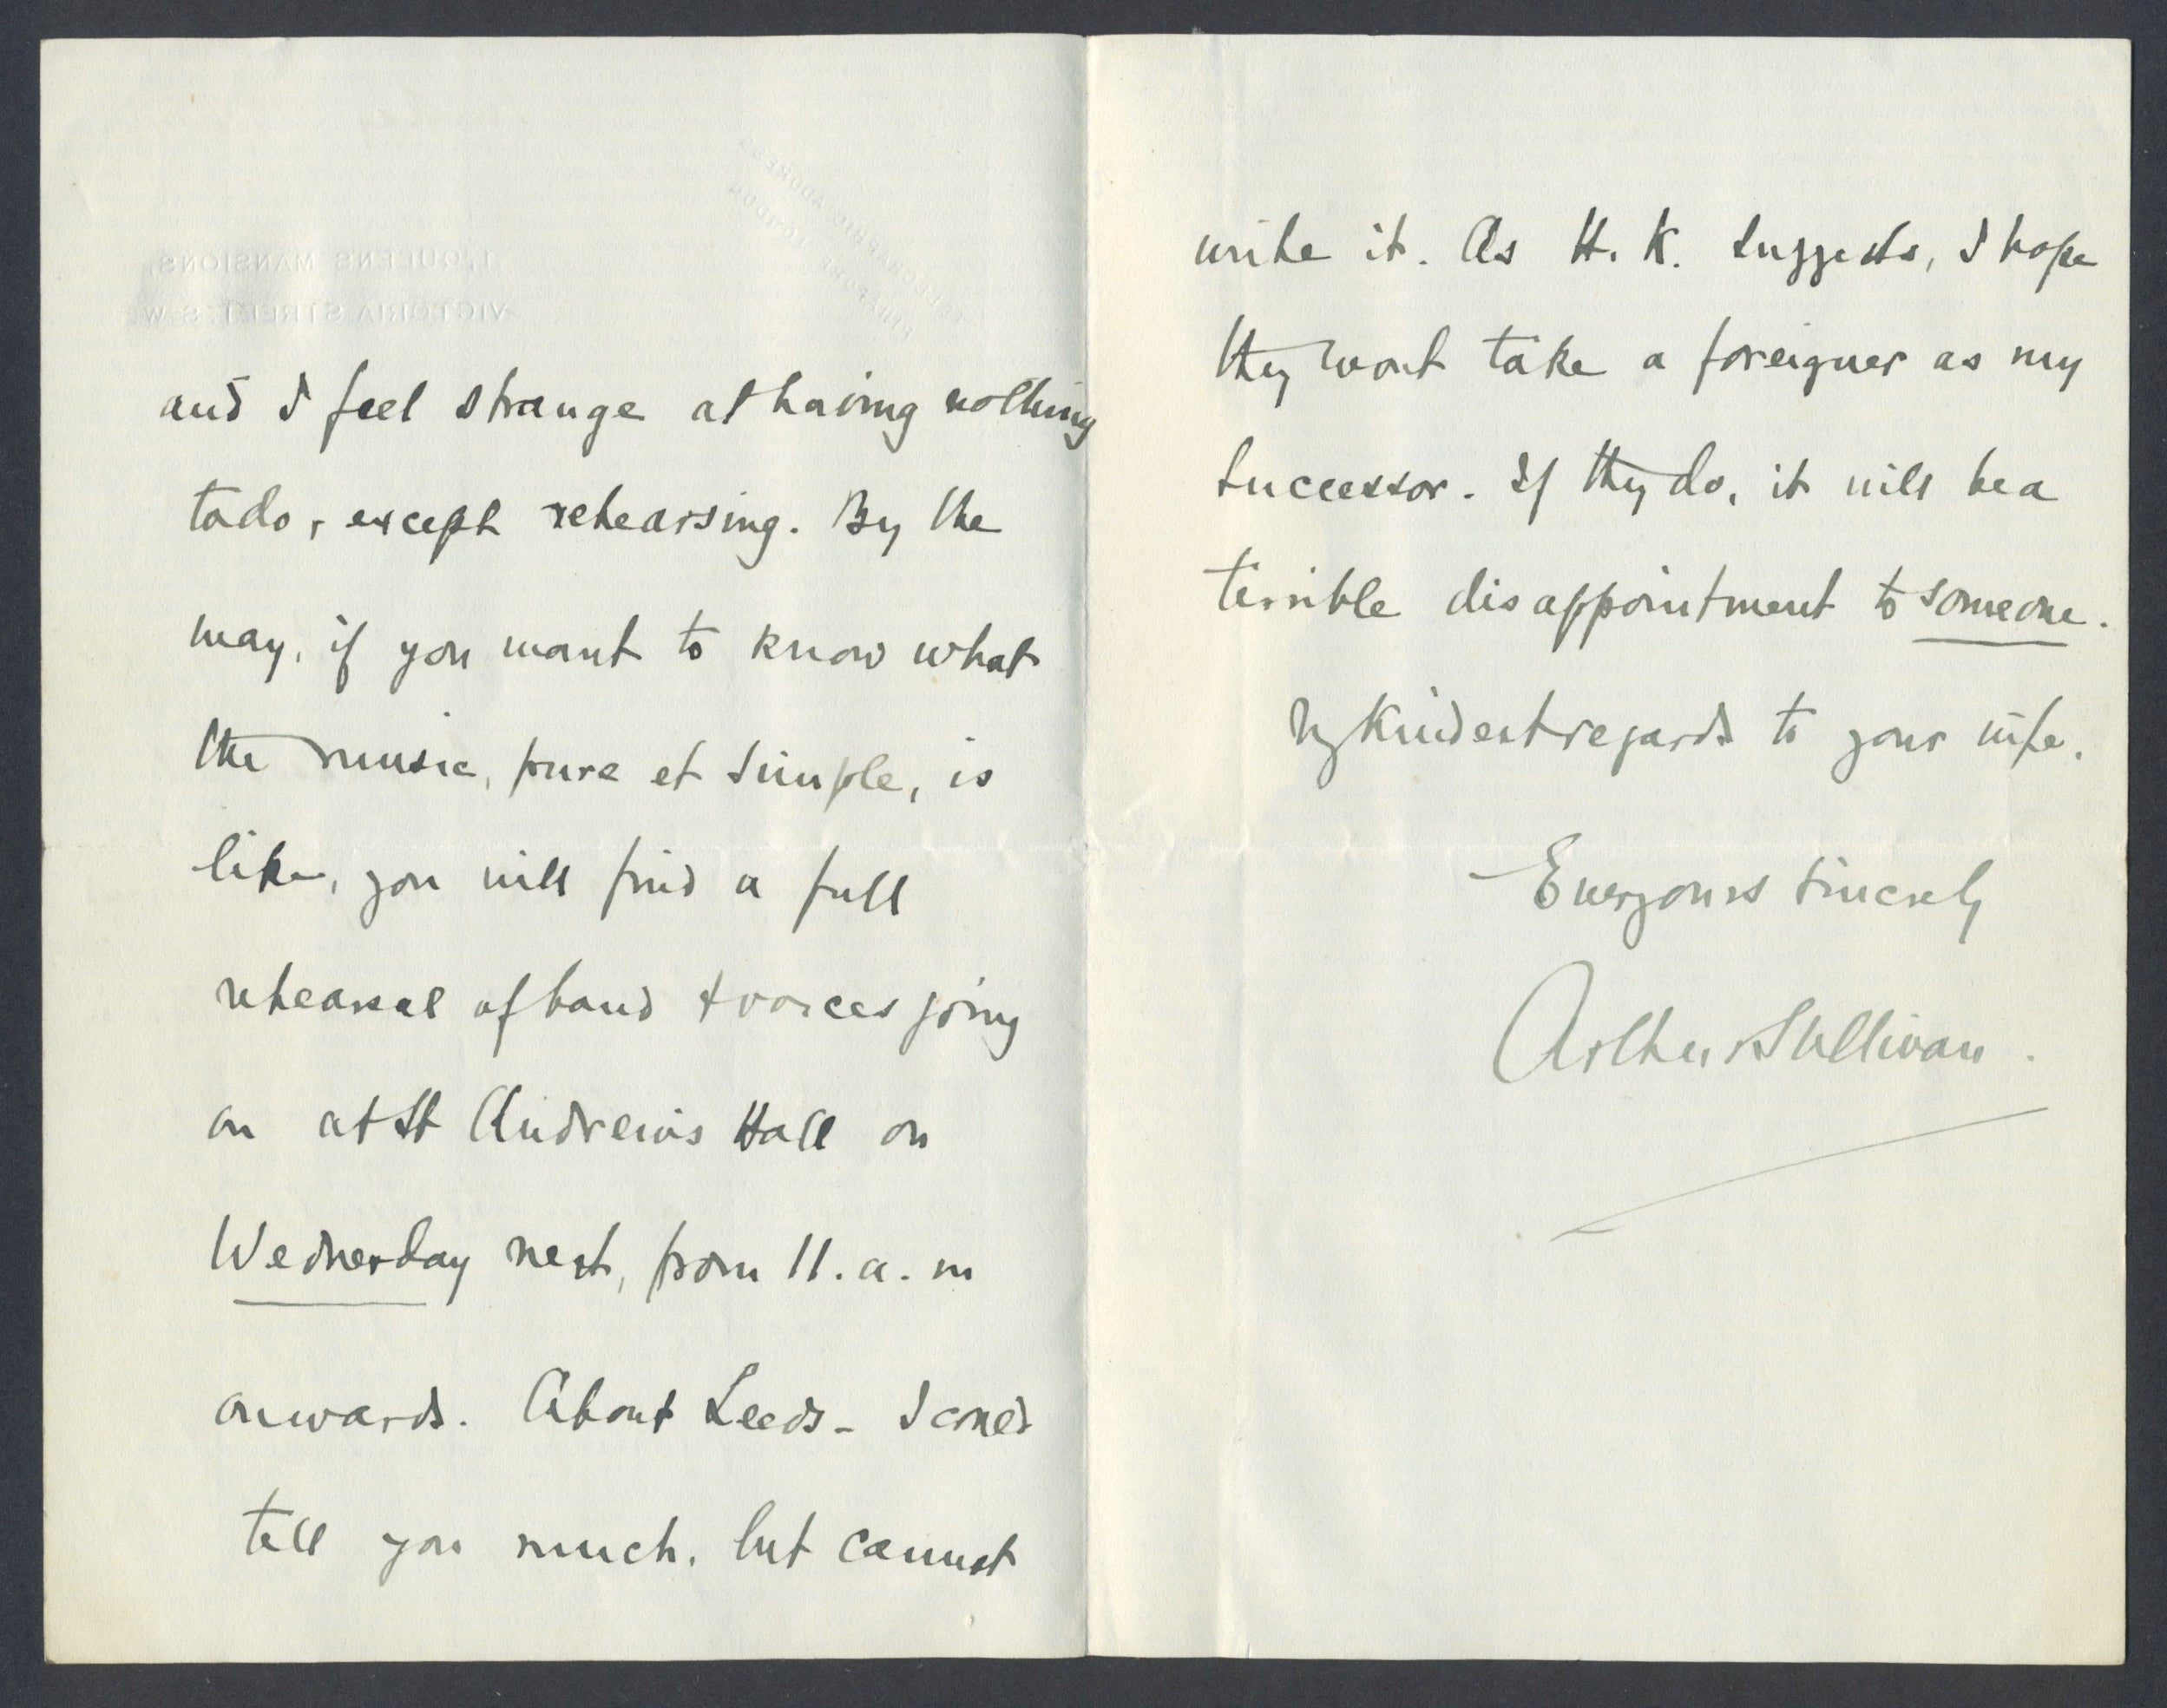 1, QUEEN'S MANSIONS,
VICTORIA STREET, S.W.
TELEGRAPHIC ADDRESS
PINAFORE LONDON
and I feel strange at having nothing
to do, except rehearsing. By the
way, if you want to know what
the music, pure et simple, is
like, you will find a full
rehearsal of band & voices going
on at St Andrew's Hall on
Wednesday next, from 11. a. m
onwards. About Leeds - I could
tell you much, but cannot
write it. As H. K. suggests, I hope
they wont take a foreigner as my
successor. If they do, it will be a
terrible disappointment to someone.
My kindest regards to your wife.
Ever yours sincerely
Arthur Sullivan.